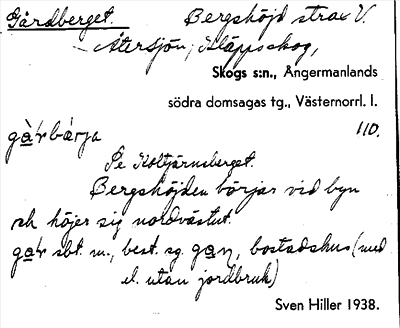 Gårdberget. Bergshöjd strax V.
Återsjön, Kläppsskog,
Skogs s:n., Ångermanlands
södra domsagas tg., Västernorrl. l.
110.
Se Koltjärnsberget.
Bergshöjden börjar vid byn
och höjer sig nordvästut.
sbt. m., best. sg. bostadshus (med
el. utan jordbruk)
Sven Hiller 1938.